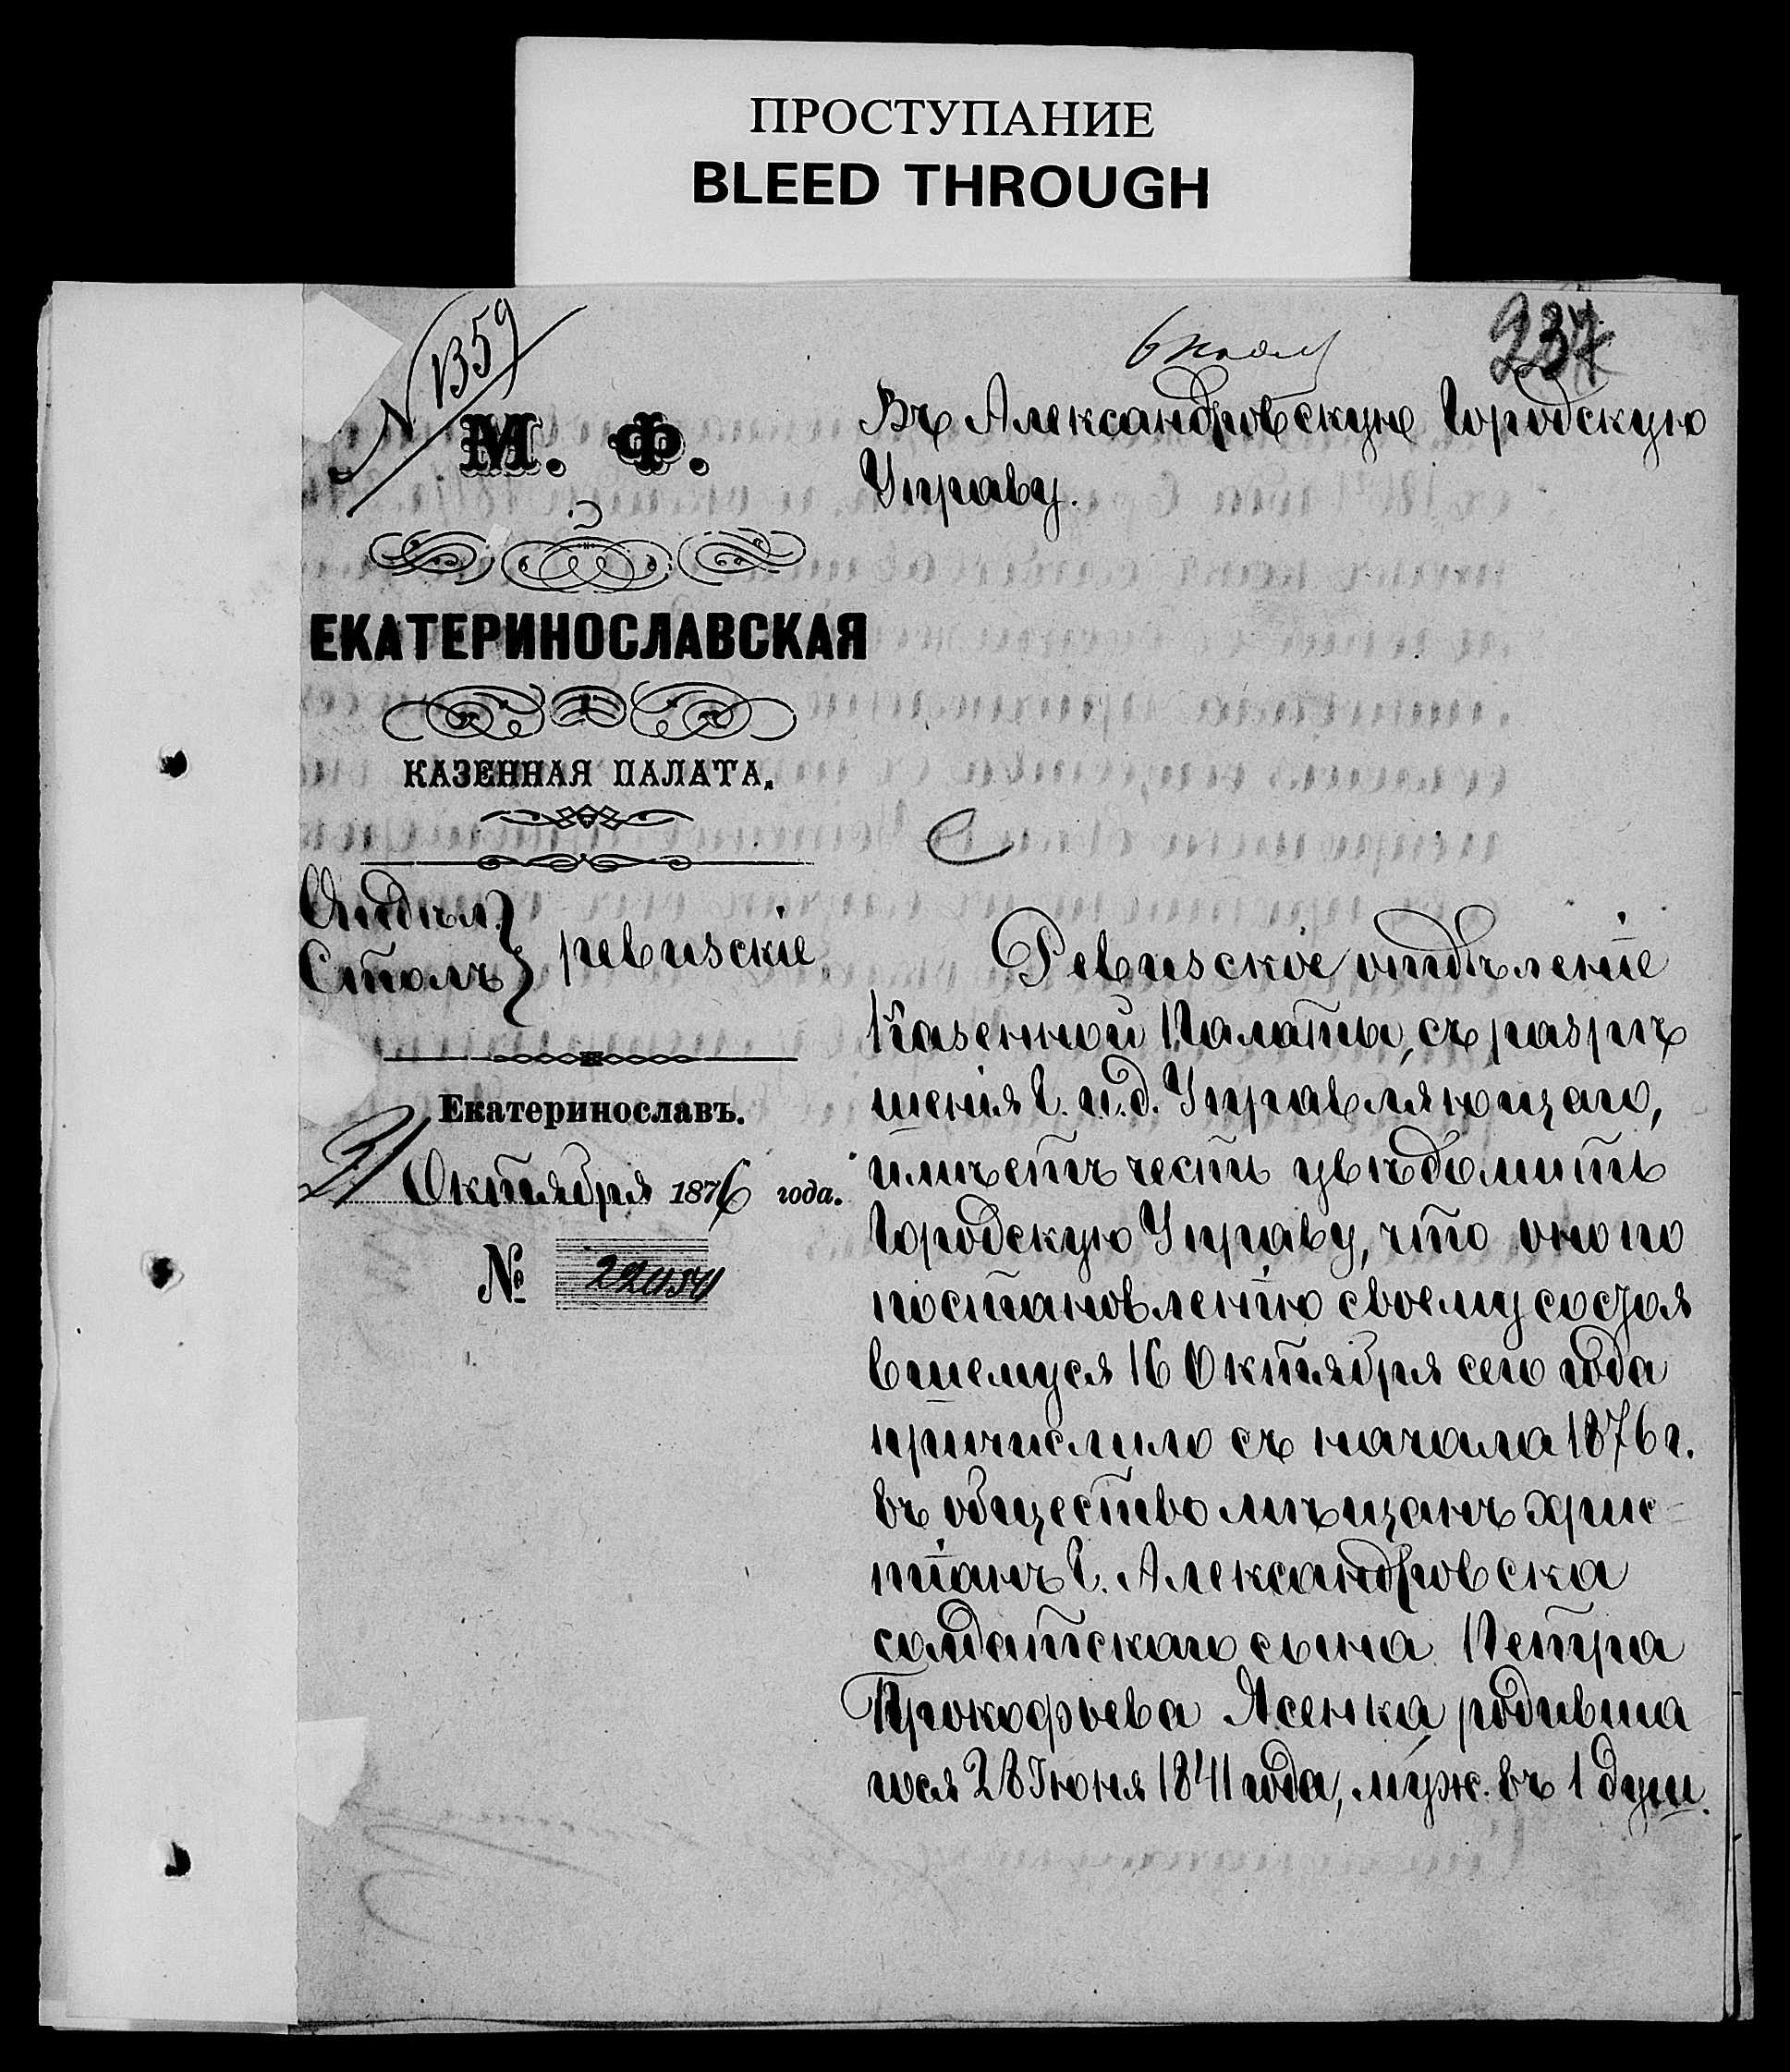 ПРОСТУПАНИЕ
BLEED THROUGH
237
N 1359
М. Ф.
ЕКАТЕРИНОСЛАВСКАЯ
КАЗЕННАЯ ПАЛАТА.
Отдѣл.
Столъ
ревизскіе.
Екатеринославъ.
21 Октября 1876 года.
№
Въ Александровскую Городскую
Управу.
Ревизское отдѣленіе
Казенной Палаты, съ разрѣ
шенія Г. и. д. Управляющаго,
имѣетъ честь увѣдомить
Городскую Управу, что оно по
постановленію своему состоя
вшемуся 16 Октября сего года
причислило съ начала 1876 г.
въ общество мѣщанъ хрис-
тіанъ г. Александровска
солдатскаго сына Петра
Прокофьева Ясенка, родивша
гося 28 Іюня 1841 года, муж. въ 1 душ.